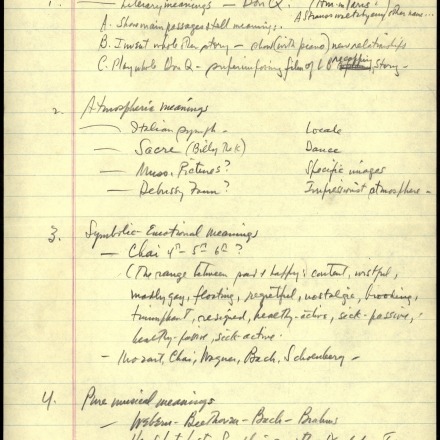 1. — Literary meanings — Don Q.
A. Show main passages & tell meanings.
B. Invent whole other story — show (with piano) new relationships
C. Play whole Don Q — superimposing film of story.
2. Atmospheric meanings
— Italian Symph — Locale
— Sacre (Billy the K) Dance
— Muss. Pictures? Specific images
— Debussy Faun? Impressionist atmosphere —
3. Symbolic-Emotional meanings
— Chai 4th — 5th 6th ?
(The range between sad & happy: content, wistful,
madly gay, floating, regretful, nostalgic, brooding,
triumphant, resigned, healthy-active, sick-passive,
healthy-passive, sick-active.
— Mozart, Chai, Wagner, Bach, Schoenberg —
4. Pure musical meanings
— Webern — Beethoven — Bach — Brahms